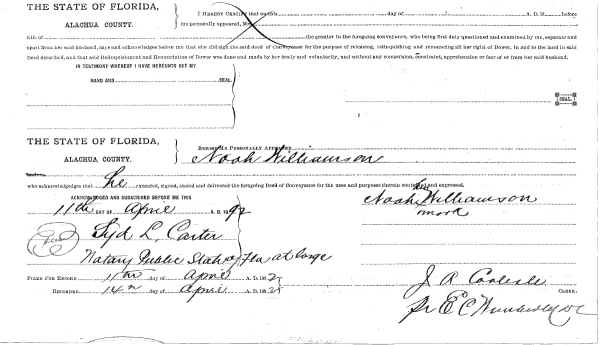 THE STATE OF FLORIDA,
ALACHUA COUNTY.
I HEREBY CERTIFY that on this day of A. D. 18 before
me personally appeared, Mrs.
wife of the grantor in the foregoing conveyance, who being first duly questioned and examined by me, separate and
apart from her said husband, says and acknowledges before me that she did sign the said deed of Conveyance for the purpose of releasing, relinquishing and renouncing all her right of Dower, in and to the land in said
Deed described, and that said Relinquishment and Renunciation of Dower was done and made by her freely and voluntarily, and without any compulsion, constraint, apprehension or fear of or from her said husband.
IN TESTIMONY WHEREOF I HAVE HEREUNTO SET MY
HAND AND SEAL
SEAL
THE STATE OF FLORIDA,
ALACHUA COUNTY.
BEFORE ME PERSONALLY APPEARED
Noah Williamson
who acknowledges that he executed, signed, sealed and delivered the foregoing Deed of Conveyance for the uses and purposes therein contained and expressed.
ACKNOWLEDGED AND SUBSCRIBED BEFORE ME THIS
11th DAY OF April A. D. 1892
his
Noah Williamson
mark
Syd L. Carter
Notary Public State of Fla at large
FILED FOR RECORD 11th day of April A. D. 1892
RECORDED 14th day of April A. D. 1892
J A Carlisle
CLERK.
pr E C Wimberley DC